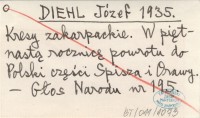 DIEHL Józef 1935.
Kresy zakarpackie. W pięt-
nastą rocznicę powrotu do
Polski części Spisza i Orawy.
— Głos Narodu nr 195.
BT/OM/4093